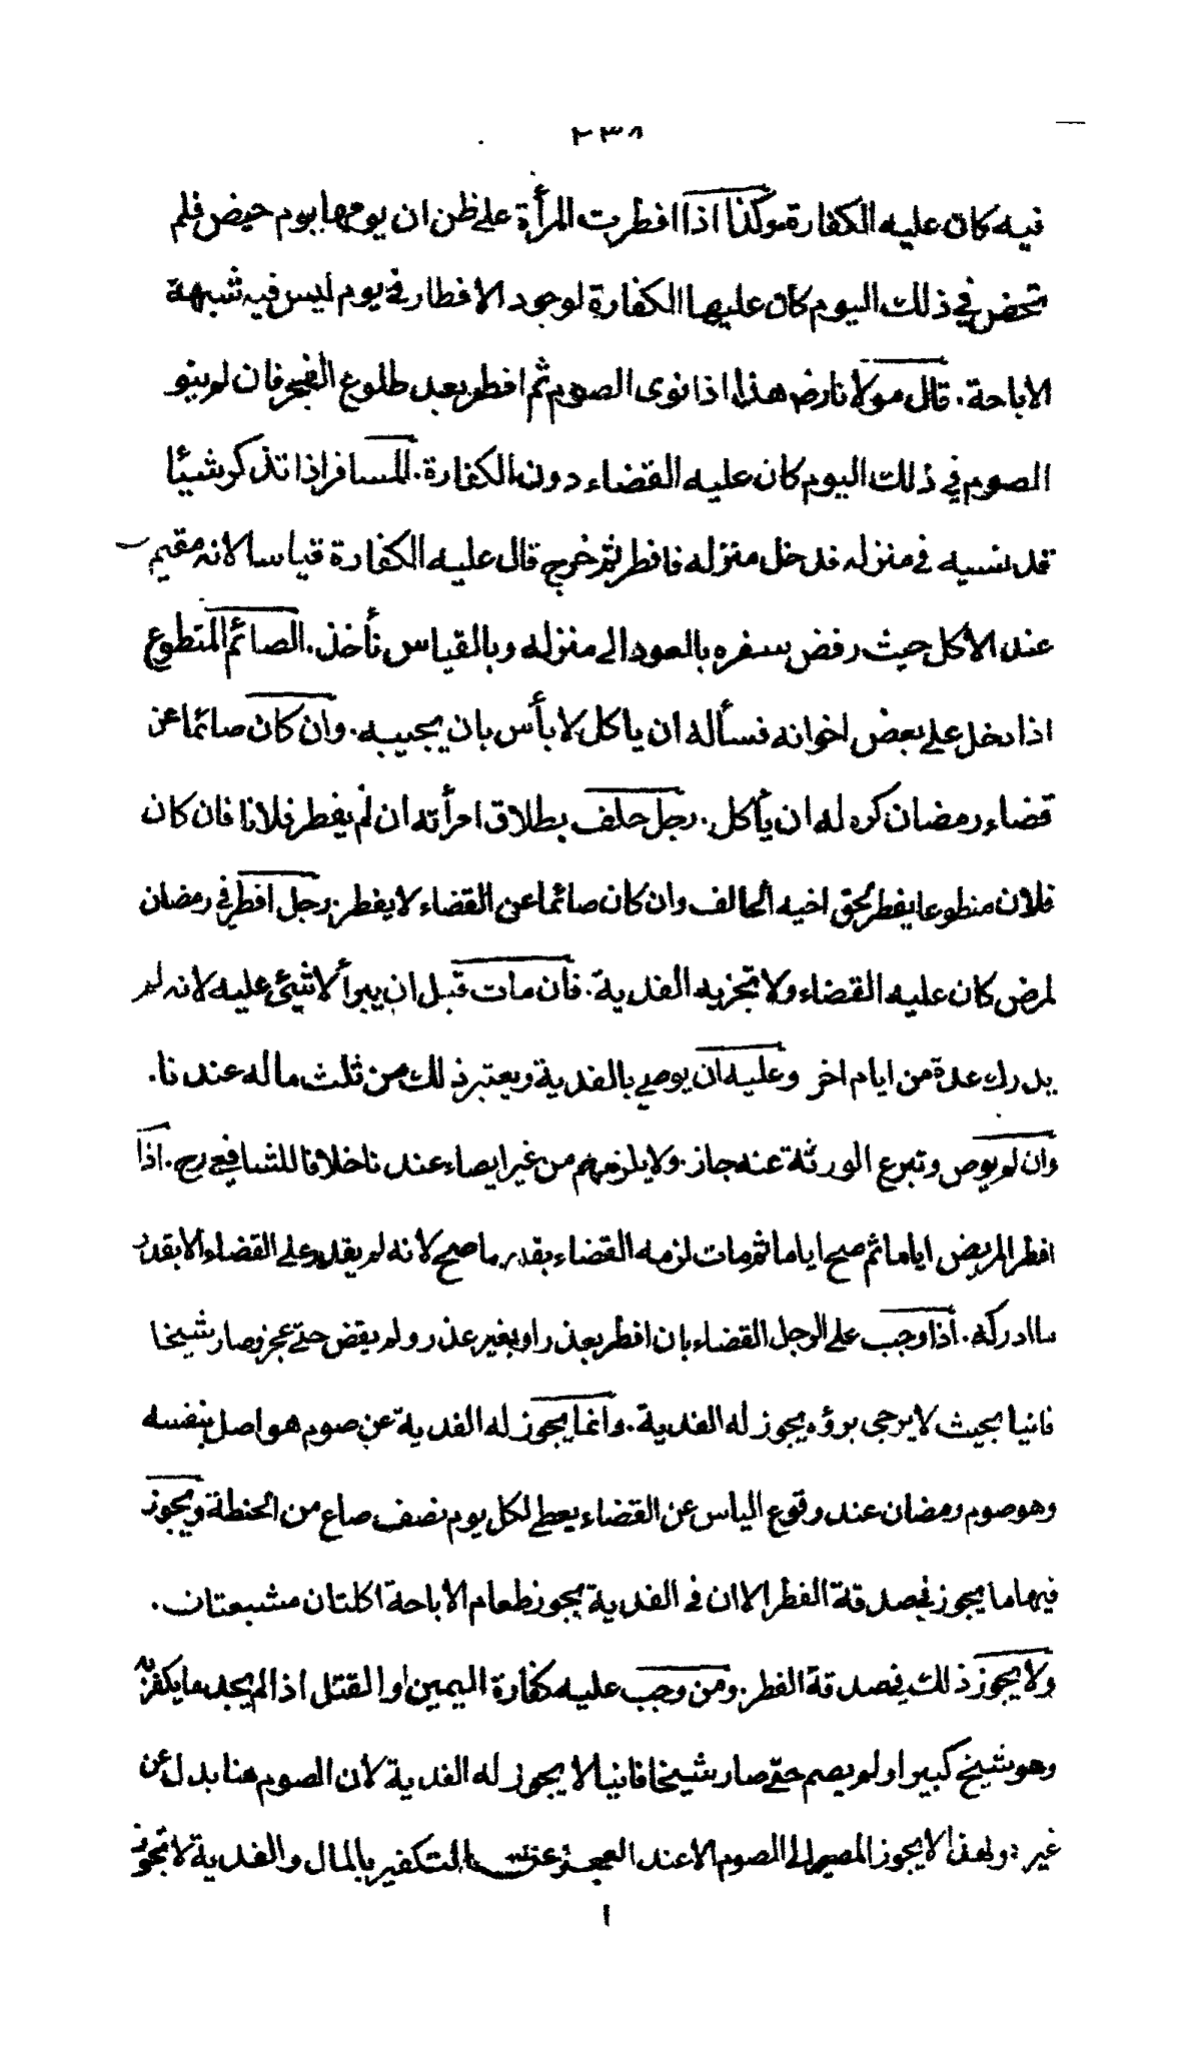 ٢٣٨
فيه كان عليه الكفارة وكذا اذا افطرت المرأة على ظن ان يومها يوم حيض فلم
تحض في ذلك اليوم كان عليها الكفارة لوجود الافطار في يوم ليس فيه شبهة
الاباحة. قال مولانا رض هذا اذا نوى الصوم ثم افطر بعد طلوع الفجر فان لم ينو
الصوم في ذلك اليوم كان عليه القضاء دون الكفارة. المسافر اذا تذكر شيئا
قد نسيه في منزله فدخل منزله فافطر ثم خرج قال عليه الكفارة قياسا لانه مقيم
عند الأكل حيث رفض سفره بالعود الى منزله وبالقياس نأخذ. الصائم المتطوع
اذا دخل على بعض اخوانه فسأله ان ياكل لا بأس بان يجيبه. وان كان صائما عن
قضاء رمضان كره له ان يأكل. رجل حلف بطلاق امرأته ان لم يفطر فلانا فان كان
فلان متطوعا يفطر بحق اخيه الحالف وان كان صائما عن القضاء لا يفطر. رجل افطر في رمضان
لمرض كان عليه القضاء ولا تجزيه الفدية. فان مات قبل ان يبرأ لا شيئ عليه لانه لم
يدرك عدة من ايام اخر وعليه ان يوصي بالفدية ويعتبر ذلك من ثلث ماله عندنا.
وان لم يوص وتبرع الورثة عنه جاز. ولا يلزمهم من غير ايصاء عندنا خلافا للشافعي رح. اذا
افطر المريض اياما ثم صح اياما ثم مات لزمه القضاء بقدر ما صح لانه لم يقدر على القضاء الا بقدر
ما ادركه. اذا وجب على الرجل القضاء بان افطر بعذر او بغير عذر ولم يقض حتى عجز وصار شيخا
فانيا بحيث لا يرجى برؤه يجوز له الفدية. وانما يجوز له الفدية عن صوم هو اصل بنفسه
وهو صوم رمضان عند وقوع الياس عن القضاء يعطي لكل يوم نصف صاع من الحنطة ويجوز
فيها ما يجوز في صدقة الفطر الا ان في الفدية يجوز طعام الاباحة اكلتان مشبعتان.
ولا يجوز ذلك في صدقة الفطر. ومن وجب عليه كفارة اليمين او القتل اذا لم يجد ما يكفر به
وهو شيخ كبير او لم يصم حتى صار شيخا فانيا لا يجوز له الفدية لان الصوم هنا بدل عن
غيره ولهذا لا يجوز المصير الى الصوم الا عند العجز عن التكفير بالمال والفدية لا تجوز
ا